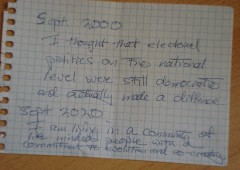 Sept. 2000
I thought that electoral
politics on the national
level were still democratic
and actually made a difference
Sept 2020
I am living in a community of
like minded people with a
commitment to and co-creating